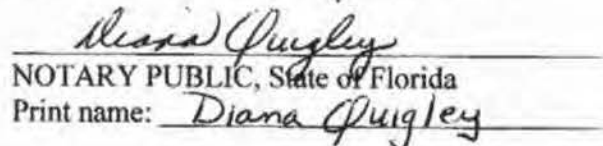 Diana Quigley
NOTARY PUBLIC, State of Florida
Print name: Diana Quigley